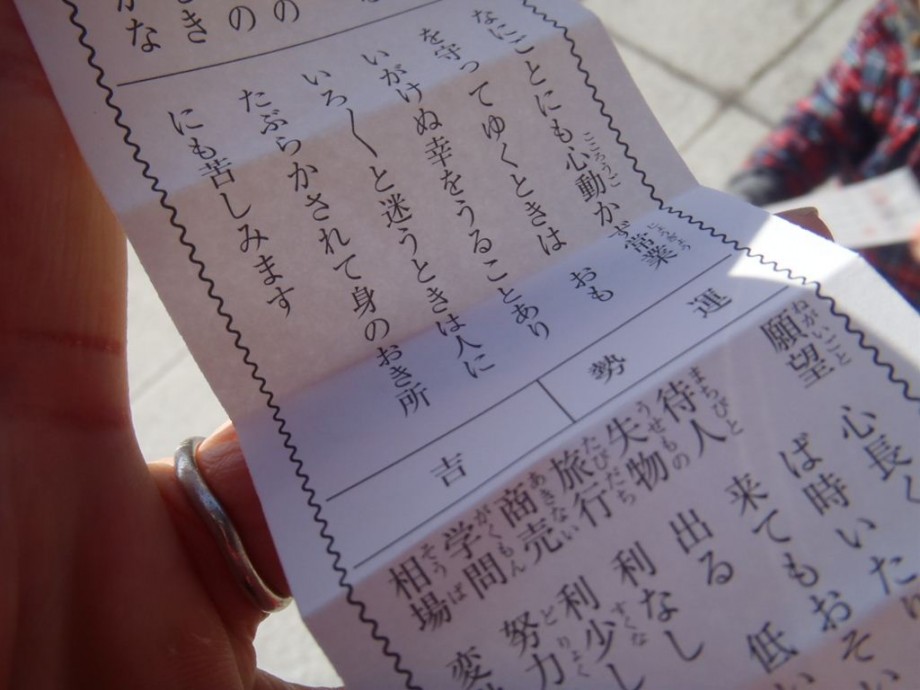 の
きの
かな
なにことにも心動かず常業
を守ってゆくときは おも
いがけぬ幸をうることあり
いろ〳〵と迷うときは人に
たぶらかされて身のおき所
にも苦しみます
運勢
吉
願望 心長く
ば時いた
待人 来てもおそい
失物 出る 低い
旅行 利なし
商売 利少し
学問 努力
相場 変